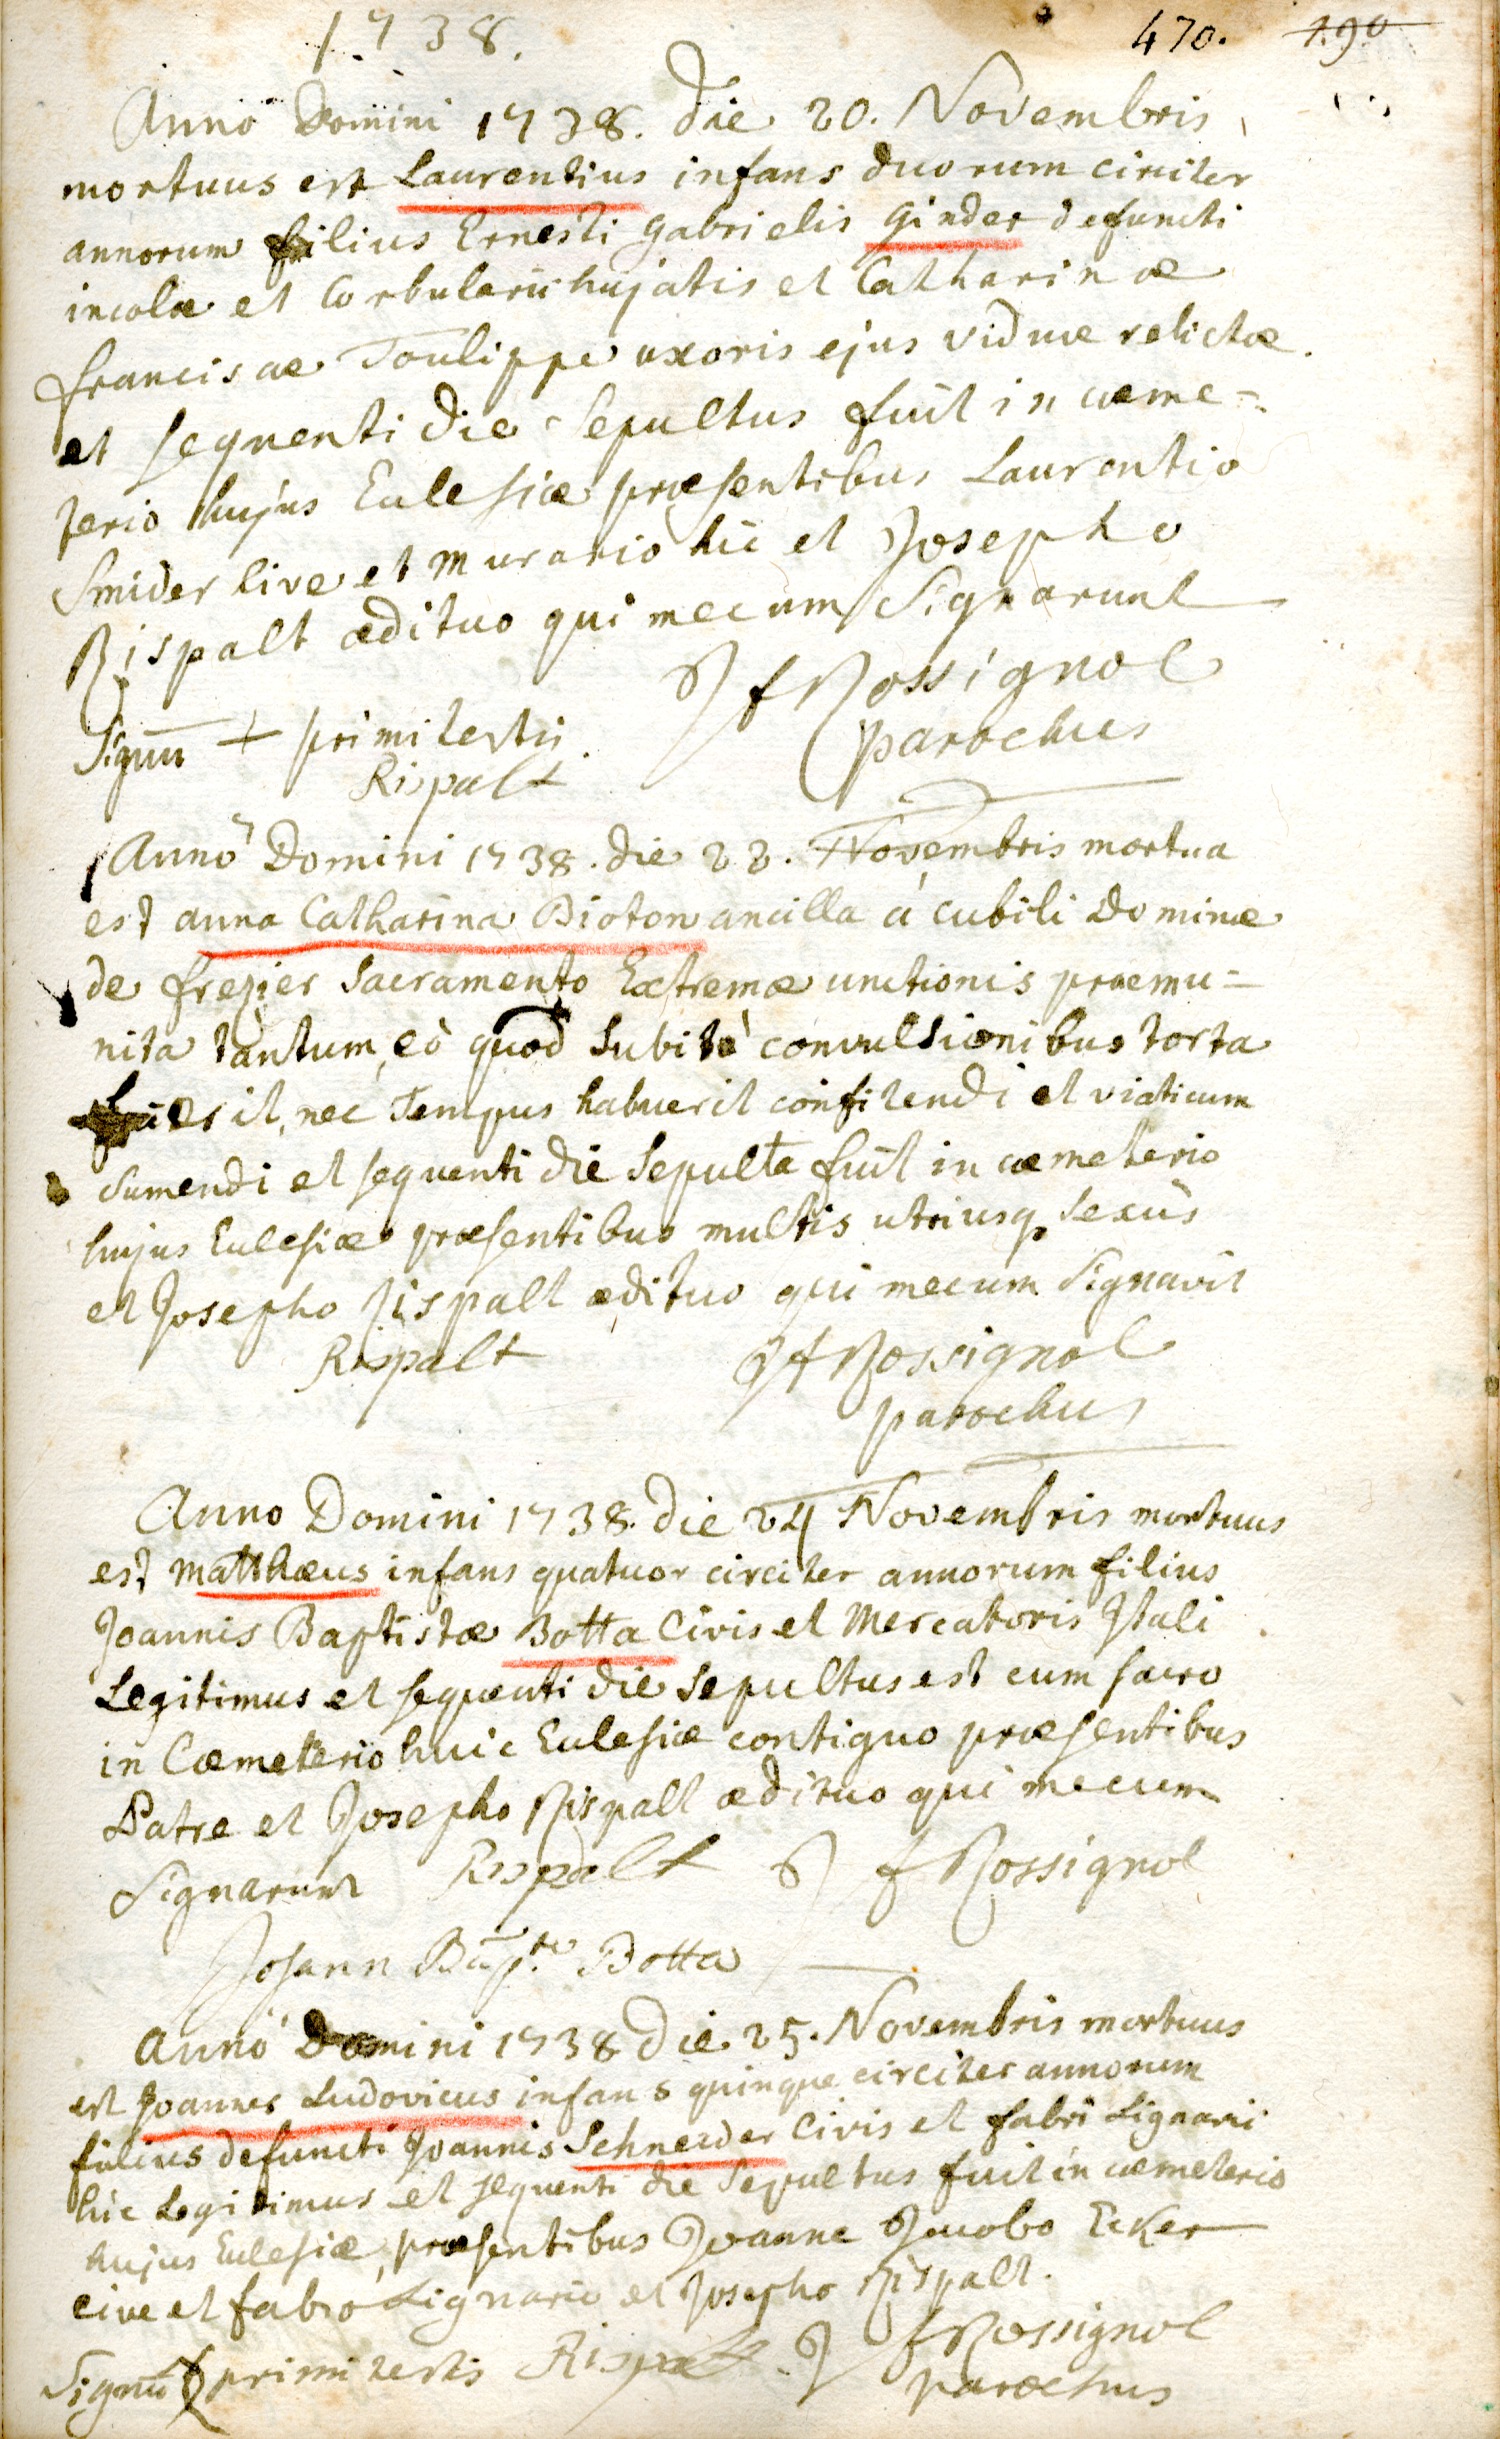 1738. 470. 190
Anno Domini 1738. die 20. Novembris
mortuus est Laurentius infans duorum circiter
annorum filius Ernesti Gabrielis Ginder defuncti
incolæ et Corbularii hujatis et Catharinæ
franciscae Toulippe uxoris ejus viduæ relictæ.
et sequenti die Sepultus fuit in cæme=
terio hujus Ecclesiæ præsentibus Laurentio
Smider cive et Murario hic et Josepho
Rispalt ædituo qui mecum Signarunt
J f Rossignol
Signum + primi testis parochus
Rispalt
Anno Domini 1738. die 22. Novembris mortua
est anna Catharina Bioton ancilla à cubili Dominæ
de frezier Sacramento Extremæ unctionis præmu=
nita tantum, eò quod Subitò convulsionibus torta
fuerit, nec Tempus habuerit confitendi et viaticum
Sumendi et sequenti die Sepulta fuit in cæmeterio
hujus Ecclesiæ præsentibus multis utriusq. Sexûs
et Josepho Rispalt ædituo qui mecum Signavit
Rispalt J f Rossignol
parochus
Anno Domini 1738. die 24 Novembris mortuus
est Matthæus infans quatuor circiter annorum filius
Joannis Baptistæ Botta Civis et Mercatoris Itali
Legitimus et sequenti die Sepultus est cum sacro
in Cæmeterio huic Ecclesiæ contiguo præsentibus
Patre et Josepho Rispalt ædituo qui mecum
Signarunt Rispalt J f Rossignol
Johann Bapt.te Botta
Anno Domini 1738 die 25. Novembris mortuus
est Joannes Ludovicus infans quinque circiter annorum
filius defuncti Joannis Schneider Civis et fabri Lignarii
hic Legitimus et sequenti die Sepultus fuit in cæmeterio
hujus Ecclesiæ, præsentibus Joanne Jacobo Ecker
cive et fabro Lignario et Josepho Rispalt.
Signum primi testis Rispalt J f Rossignol
parochus